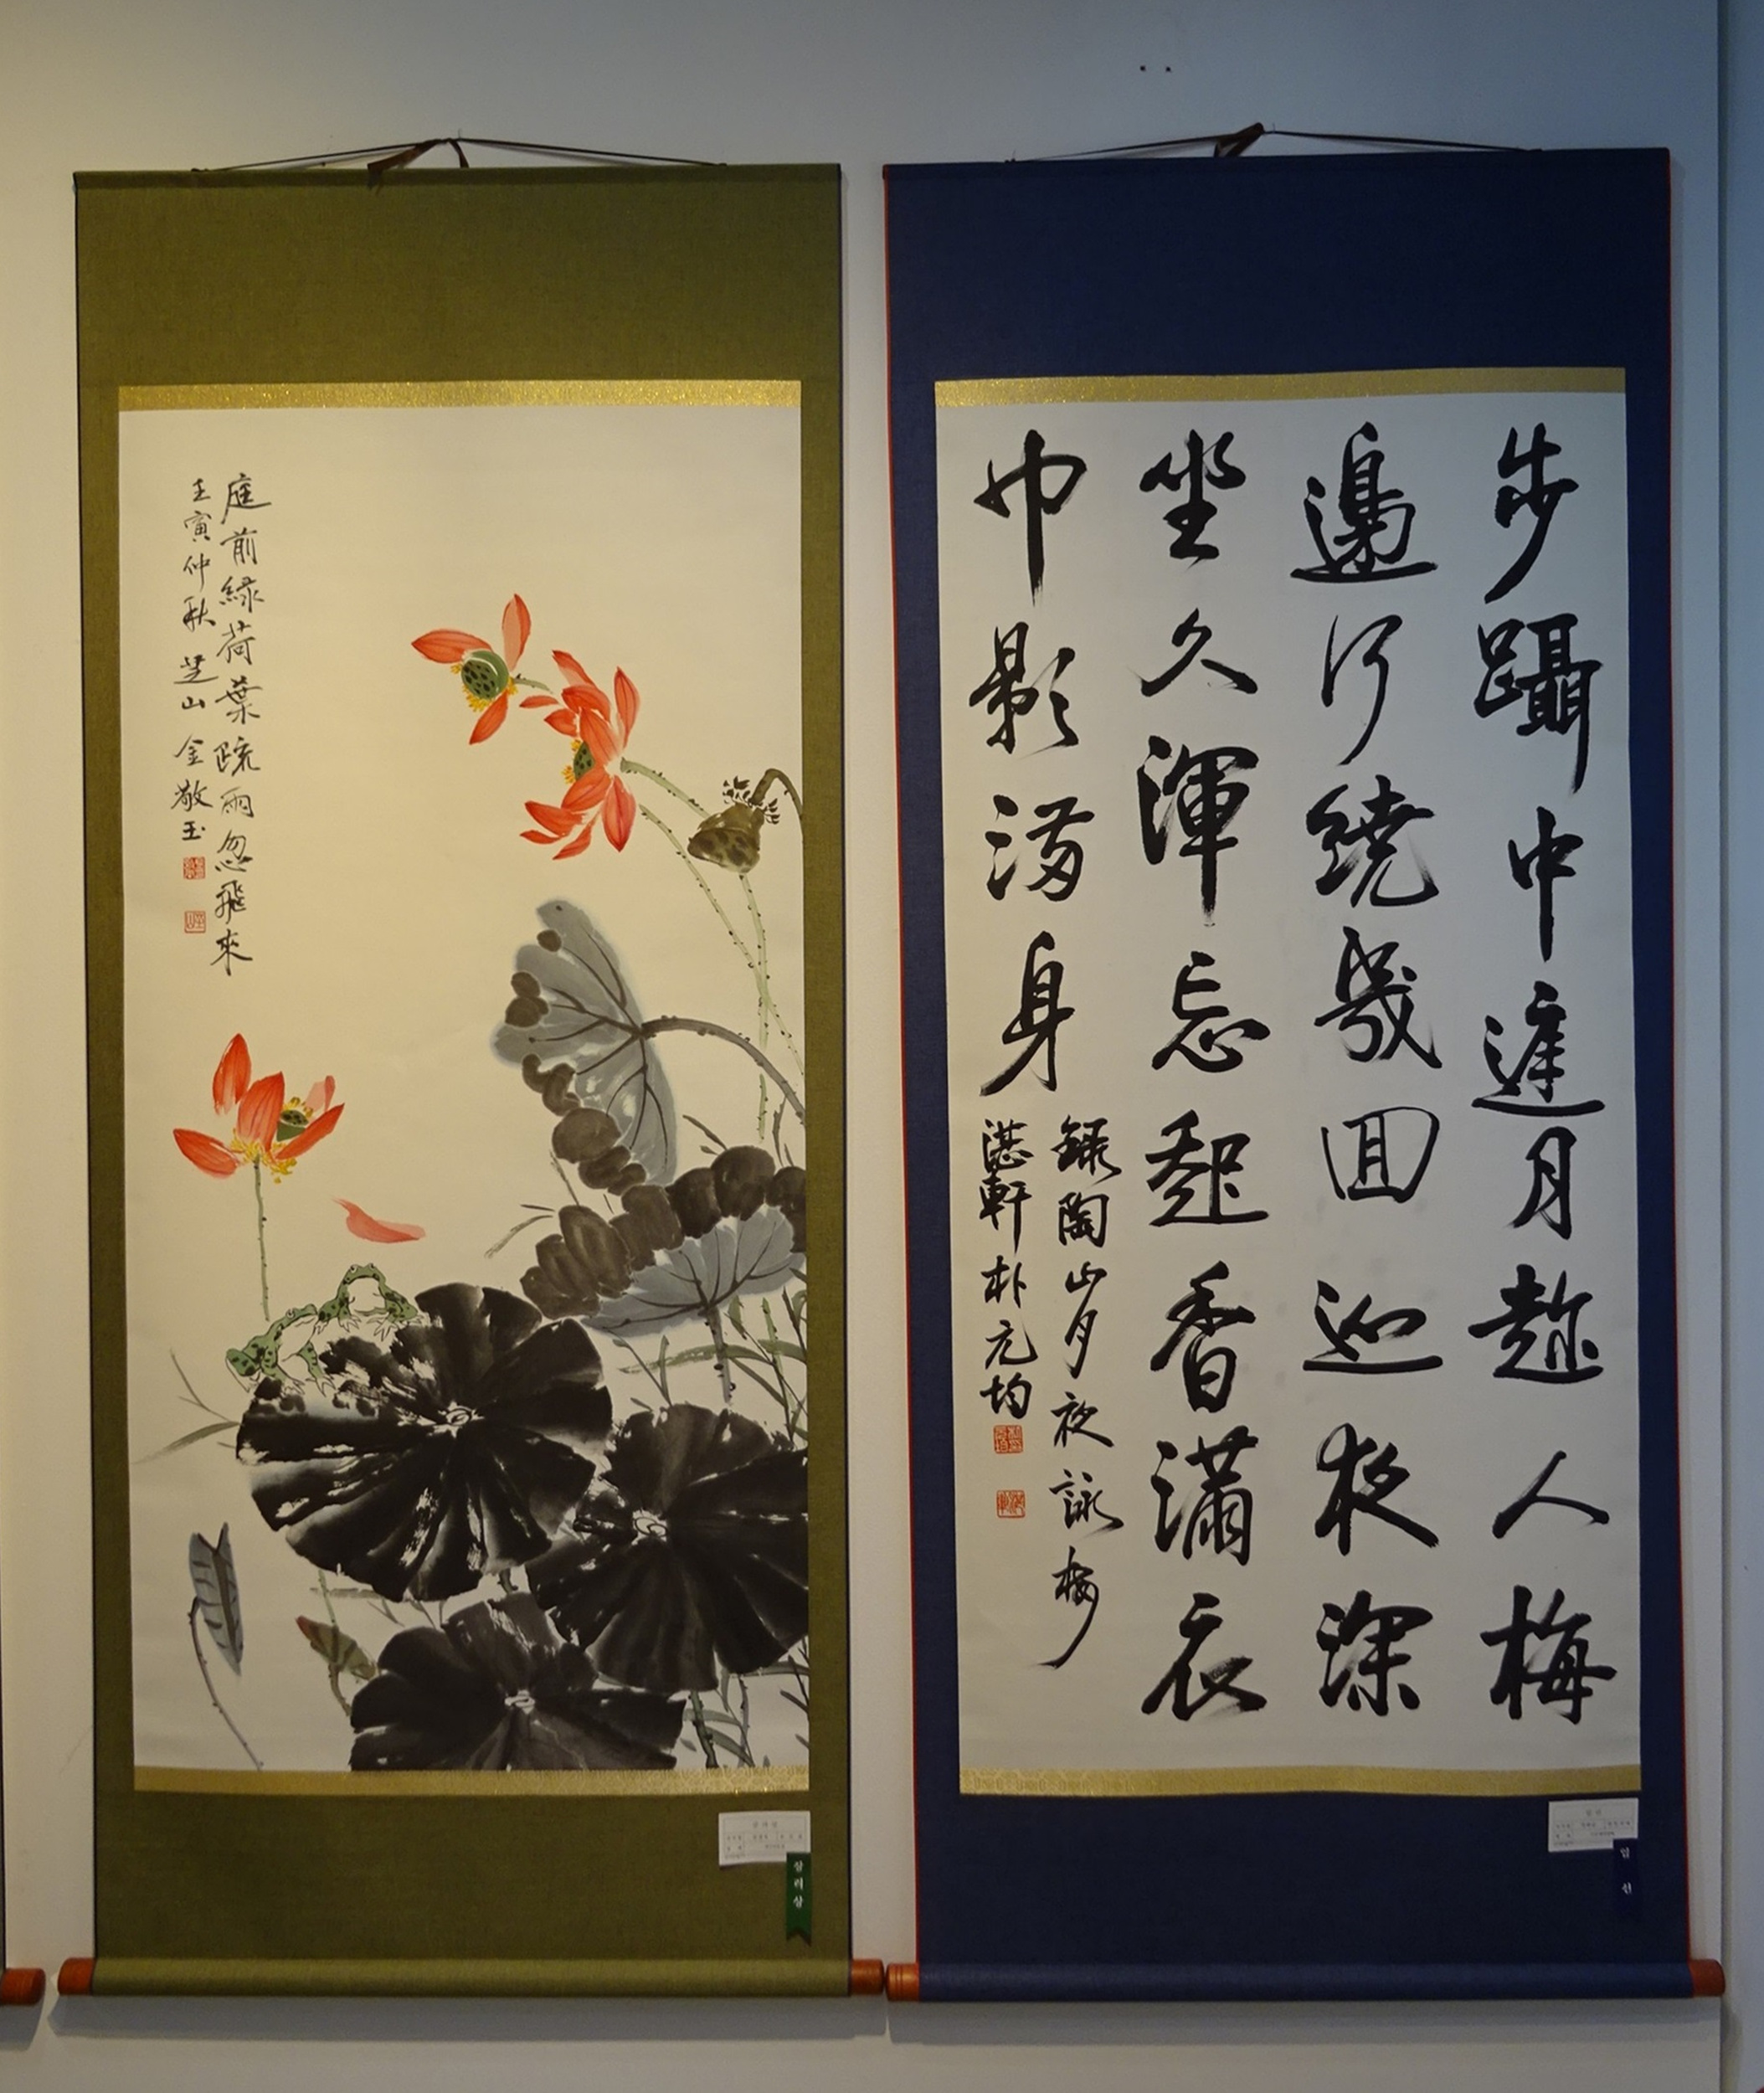 庭前綠荷葉疏雨忽飛來
壬寅仲秋 芝山 金敬玉
장려상
步躡中庭月趁人梅
邊行繞幾回巡夜深
坐久渾忘起香滿衣
巾影滿身
錄陶山月夜詠梅
湛軒朴元均
입선